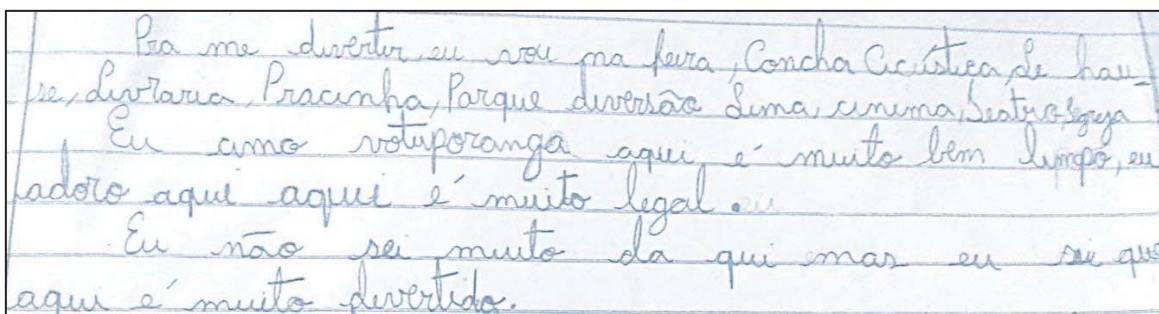 Pra me divertir, eu vou na feira, Concha Acústica, de hau-
se, Livraria, Pracinha, Parque diversão Lima, cinema, Teatro, Igreja
Eu amo votuporanga aqui, é muito bem limpo, eu
adoro aqui aqui é muito legal.
Eu não sei muito da qui mas eu sei que
aqui é muito divertido.